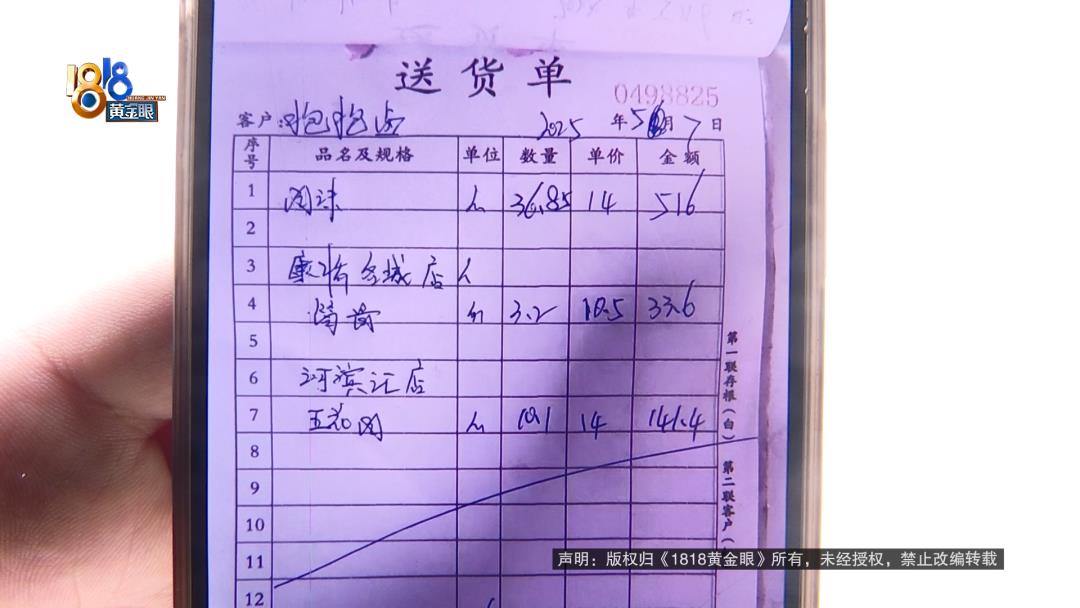 1818
HUANG JIN YAN
黄金眼
送货单
0498825
客户: 2025 年 5 月 7 日
序号 品名及规格 单位 数量 单价 金额
1 肉沫 36.85 14 516
2
3 店
4 3.2 10.5 33.6
5
6 河滨汇店
7 五花肉 10.1 14 141.4
8
9
10
11
12
第一联存根(白)
第二联客户(
声明：版权归《1818黄金眼》所有，未经授权，禁止改编转载